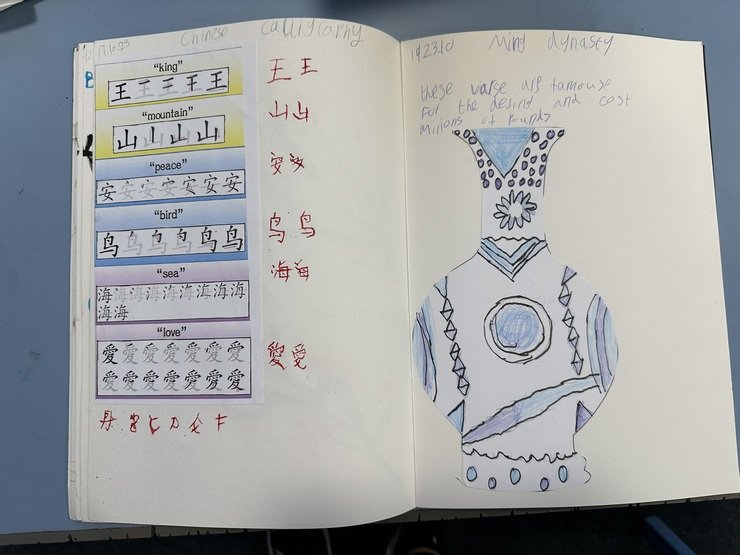 17.10.23 Chinese calligraphy
"king"
王王王王王
王王
"mountain"
山山山山
山山
"peace"
安安安安安安安
安安
"bird"
鸟鸟鸟鸟鸟鸟
鸟鸟
"sea"
海海海海海海海海海
海海
海海
"love"
愛愛愛愛愛愛愛
愛愛愛愛愛愛愛
愛愛
Ming dynasty
these varse are famouse
For the desind and cost
milions of Pounds